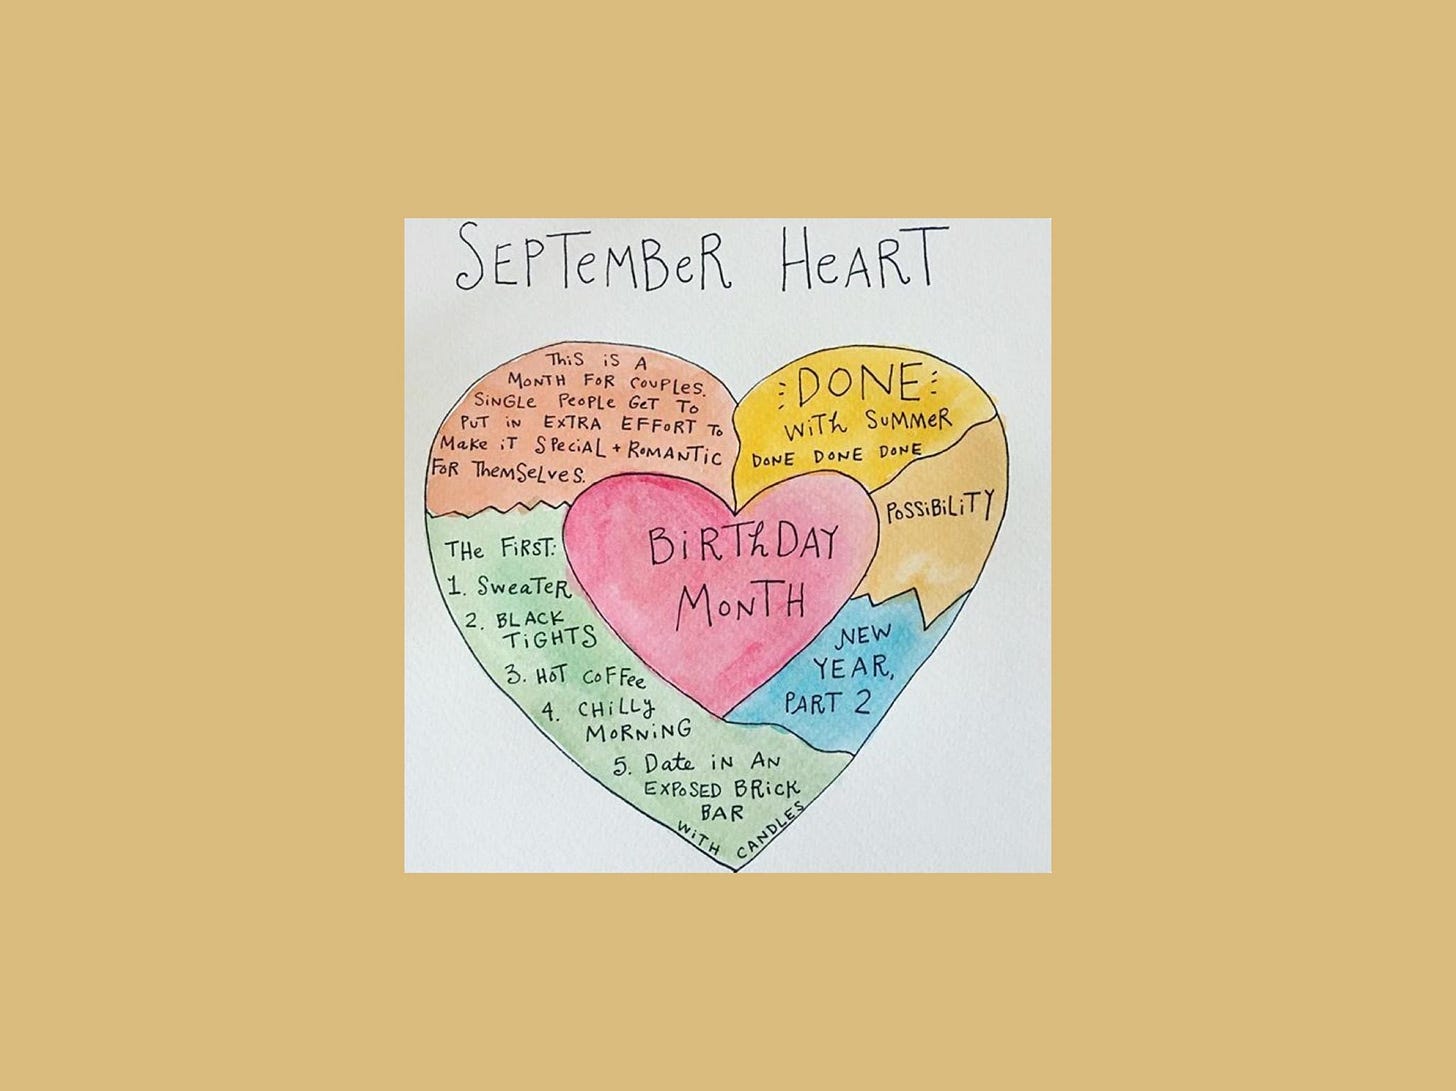 SEPTEMBER HEART
THIS IS A
MONTH FOR COUPLES.
SINGLE PEOPLE GET TO
PUT IN EXTRA EFFORT TO
MAKE IT SPECIAL + ROMANTIC
FOR THEMSELVES.
DONE
WITH SUMMER
DONE DONE DONE
POSSIBILITY
BIRTHDAY
MONTH
NEW
YEAR,
PART 2
THE FIRST:
1. SWEATER
2. BLACK
TIGHTS
3. HOT COFFEE
4. CHILLY
MORNING
5. DATE IN AN
EXPOSED BRICK
BAR
WITH CANDLES